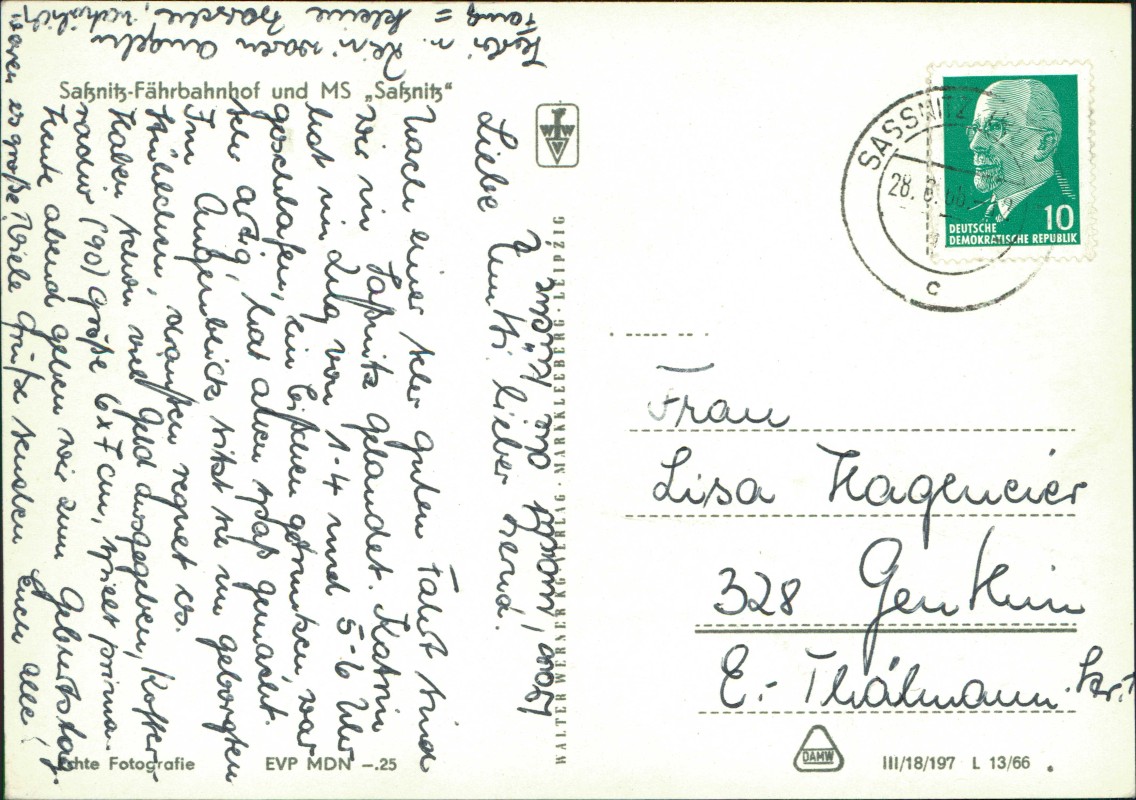 Saßnitz-Fährbahnhof und MS „Saßnitz"
Liebe Mutti, lieber
Nach einer sehr guten Fahrt sind
wir in Saßnitz gelandet. Katrin
hat im Zug von 1-4 und 5-6 Uhr
geschlafen, ein bißchen getrunken, war
sehr artig, hat allen Spaß gemacht.
Im Augenblick sitzt sie im geborgten
Stühlchen, draußen regnet es.
Haben schon viel Geld ausgegeben, Koffer-
radio (190) größe 6x7 cm, spielt prima.
Heute abend gehen wir zum Geburtstag.
Viele Grüße senden Euch alle!
waren angeln
Fang = kleine Barsche, natürlich
waren es große!
die Kürze
Echte Fotografie
EVP MDN –.25
WALTER WERNER KG VERLAG · MARKKLEEBERG-LEIPZIG
WWV
SASSNITZ
28.
c
10
DEUTSCHE
DEMOKRATISCHE REPUBLIK
Frau
Lisa Hagemeier
328 Genthin
E.-Thälmann-Str.
DAMW
III/18/197 L 13/66